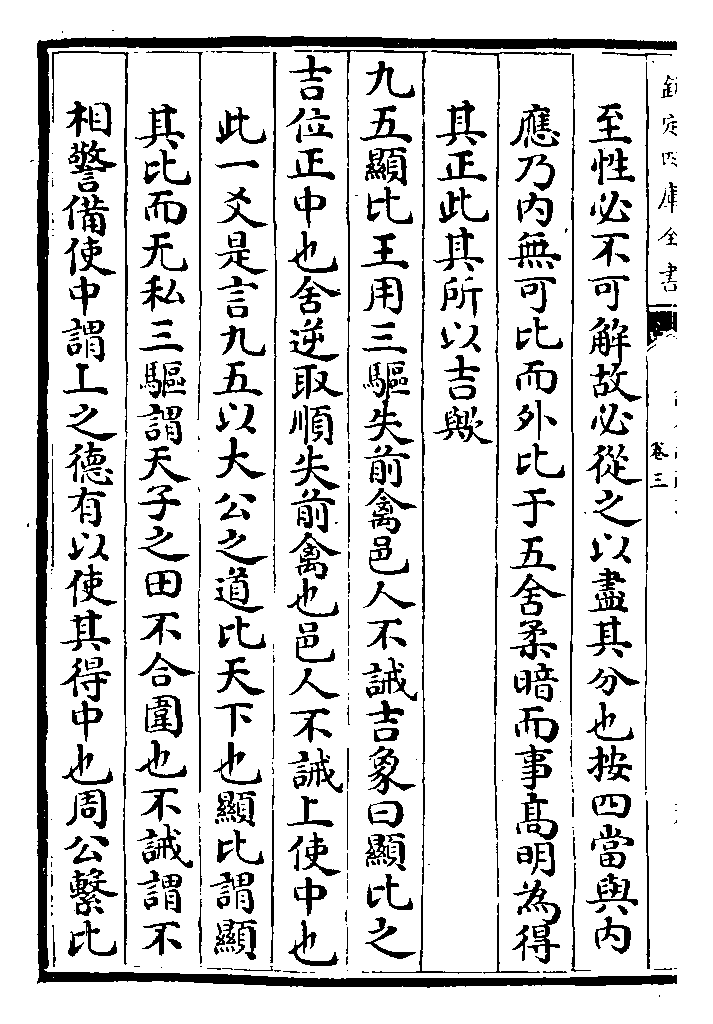 欽定四庫全書
卷三
至性必不可解故必從之以盡其分也按四當與内
應乃内無可比而外比于五舍柔暗而事高明為得
其正此其所以吉歟
九五顯比王用三驅失前禽邑人不誡吉象曰顯比之
吉位正中也舍逆取順失前禽也邑人不誡上使中也
此一爻是言九五以大公之道比天下也顯比謂顯
其比而无私三驅謂天子之田不合圍也不誡謂不
相警備使中謂上之德有以使其得中也周公繫比